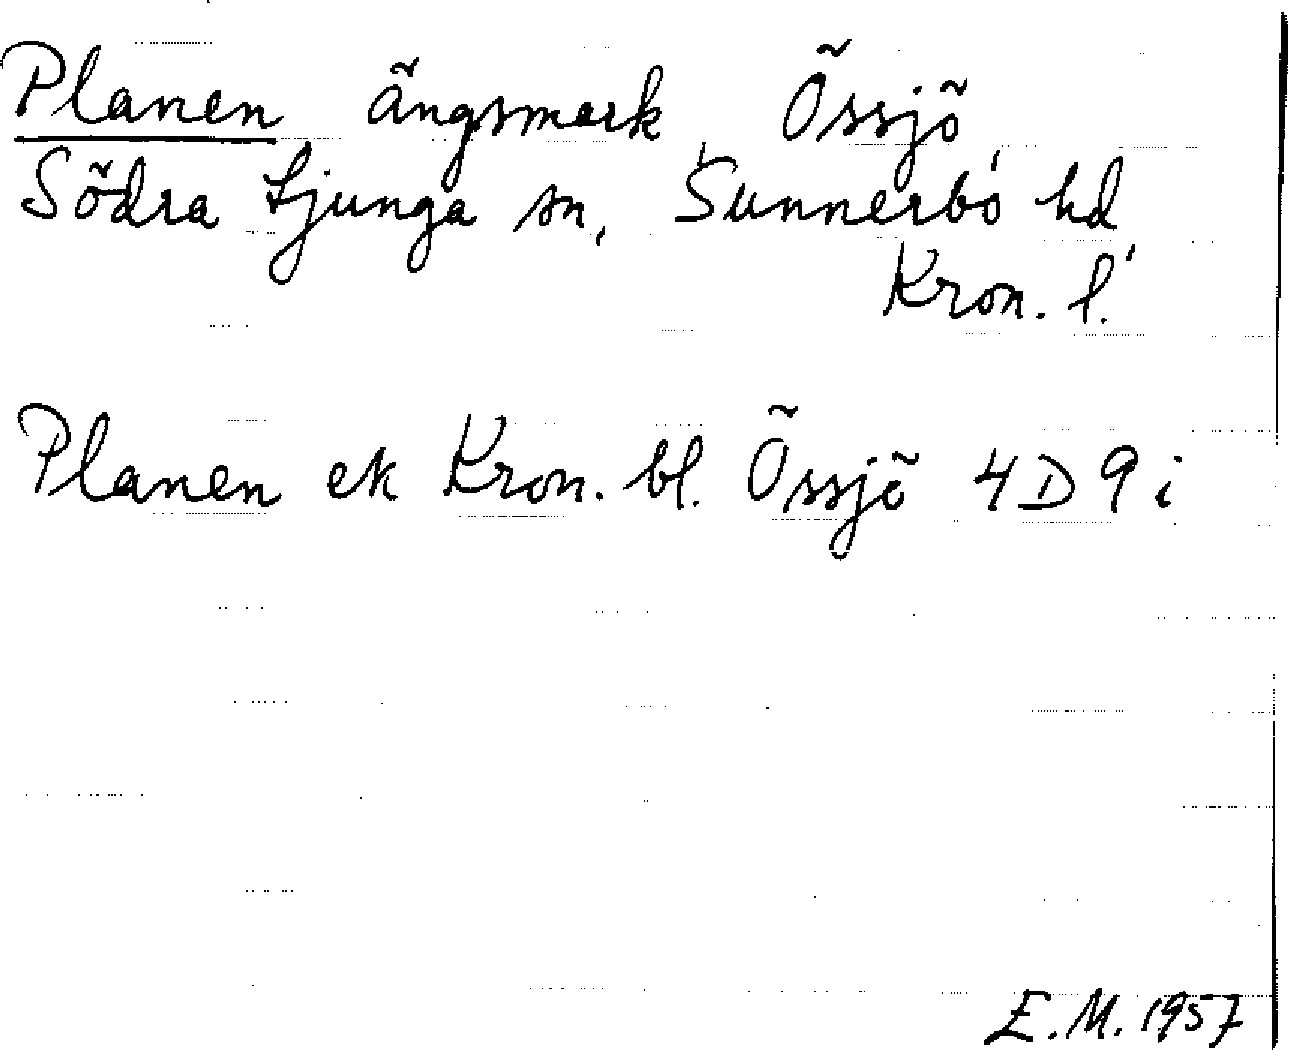 Planen ängsmark, Össjö,
Södra Ljunga sn, Sunnerbo hd,
Kron. l.
Planen ek Kron. bl. Össjö 4D9i
E.M. 1957